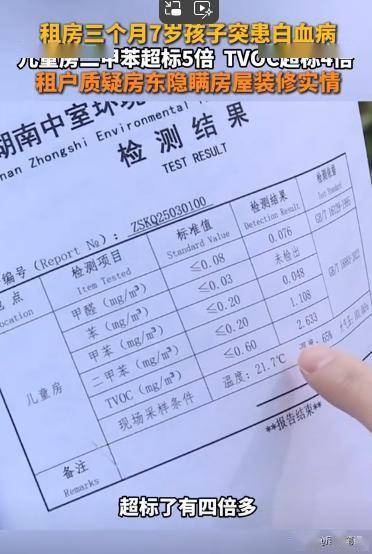 租房三个月7岁孩子突患白血病
儿童房二甲苯超标5倍 TVOC超标4倍
租户质疑房东隐瞒房屋装修实情
湖南中室环
nan Zhongshi Environmental
检测结果
TEST RESULT
编号(Report №): ZSKQ25030100
点 检测项目 标准值 检测结果
ocation Item Tested Standard Value Detection Result
甲醛(mg/m³) ≤0.08 0.076
苯(mg/m³) ≤0.03 未检出
甲苯(mg/m³) ≤0.20 0.048
二甲苯(mg/m³) ≤0.20 1.108
儿童房 TVOC(mg/m³) ≤0.60 2.633
现场采样条件 温度:21.7℃ 65%
备注
Remarks
**报告结束**
超标了有四倍多